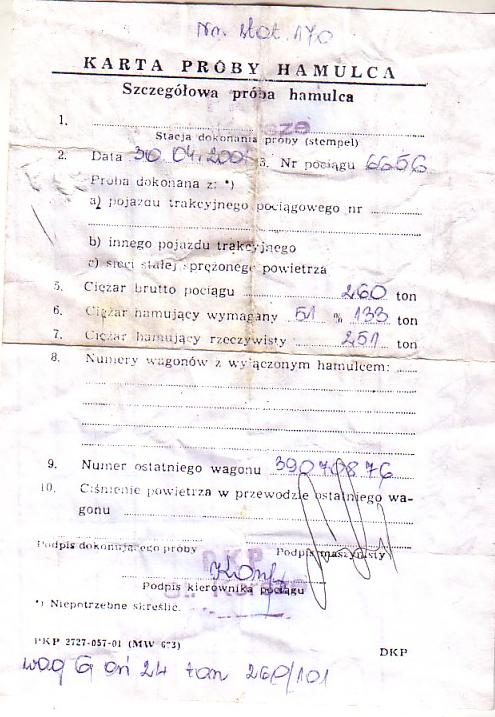 Nr. stat. 170
KARTA PRÓBY HAMULCA
Szczegółowa próba hamulca
1.
Stacja dokonania próby (stempel)
2. Data 30 04. 200 3. Nr pociągu 6656
Próba dokonana z: *)
a) pojazdu trakcyjnego pociągowego nr
b) innego pojazdu trakcyjnego
c) sieci stałej sprężonego powietrza
5. Ciężar brutto pociągu 260 ton
6. Ciężar hamujący wymagany 51 % 133 ton
7. Ciężar hamujący rzeczywisty 251 ton
8. Numery wagonów z wyłączonym hamulcem:
9. Numer ostatniego wagonu 39070876
10. Ciśnienie powietrza w przewodzie ostatniego wa-
gonu
Podpis dokonującego próby Podpis maszynisty
DKP
Podpis kierownika pociągu
*) Niepotrzebne skreślić.
PKP 2727-057-01 (MW 673)
DKP
wag 6 oś 24 ton 260/101